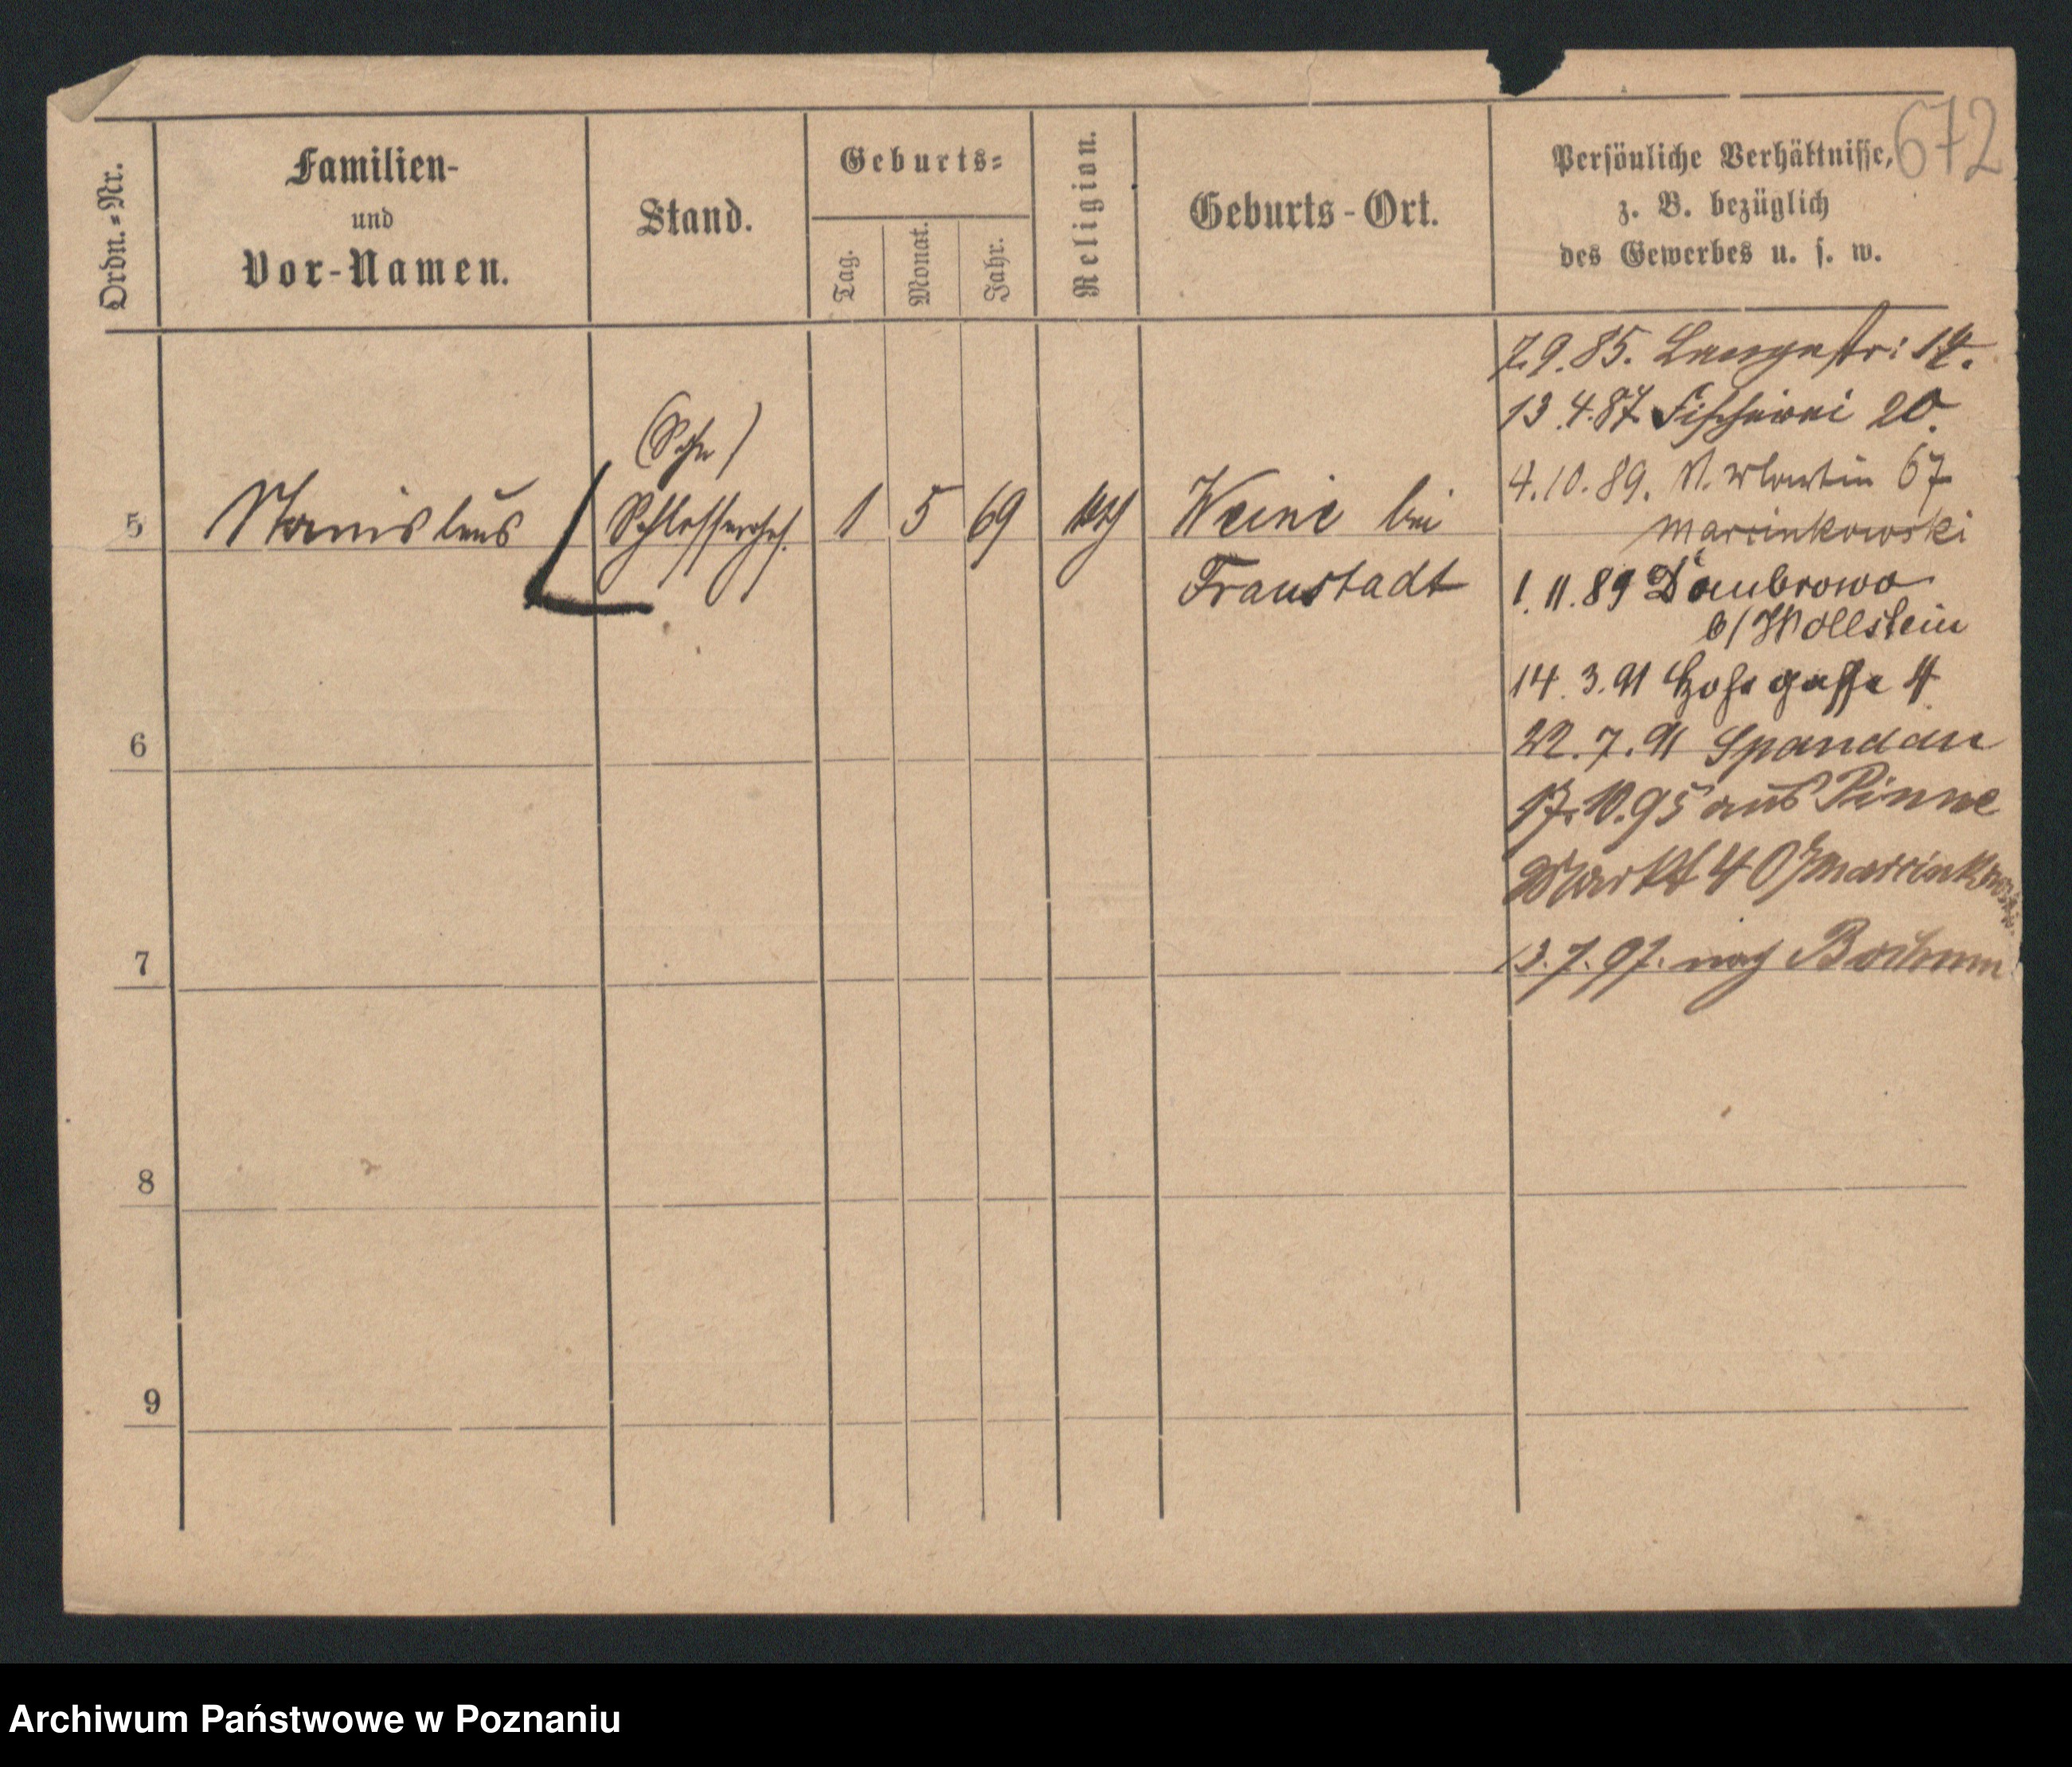 672
Ordn.-Nr.
Familien-
und
Vor-Namen.
Stand.
Geburts-
Tag.
Monat.
Jahr.
Religion.
Geburts-Ort.
Persönliche Verhältnisse,
z. B. bezüglich
des Gewerbes u. s. w.
5
Stanislaus
(Sohn)
Schlosserges.
1
5
69
kath
Weine bei
Fraustadt
7.9.85. Langestr: 14.
13.4.87. Fischerei 20.
4.10.89. St. Martin 67
Marcinkowski
1.11.89 Dombrowo
b/Wollstein
14.3.91 Hohegasse 4
22.7.91 Spandau
17.10.95 aus Pinne
Markt 40 Marcinkowski
13.7.97. nach Bochum
6
7
8
9
Archiwum Państwowe w Poznaniu